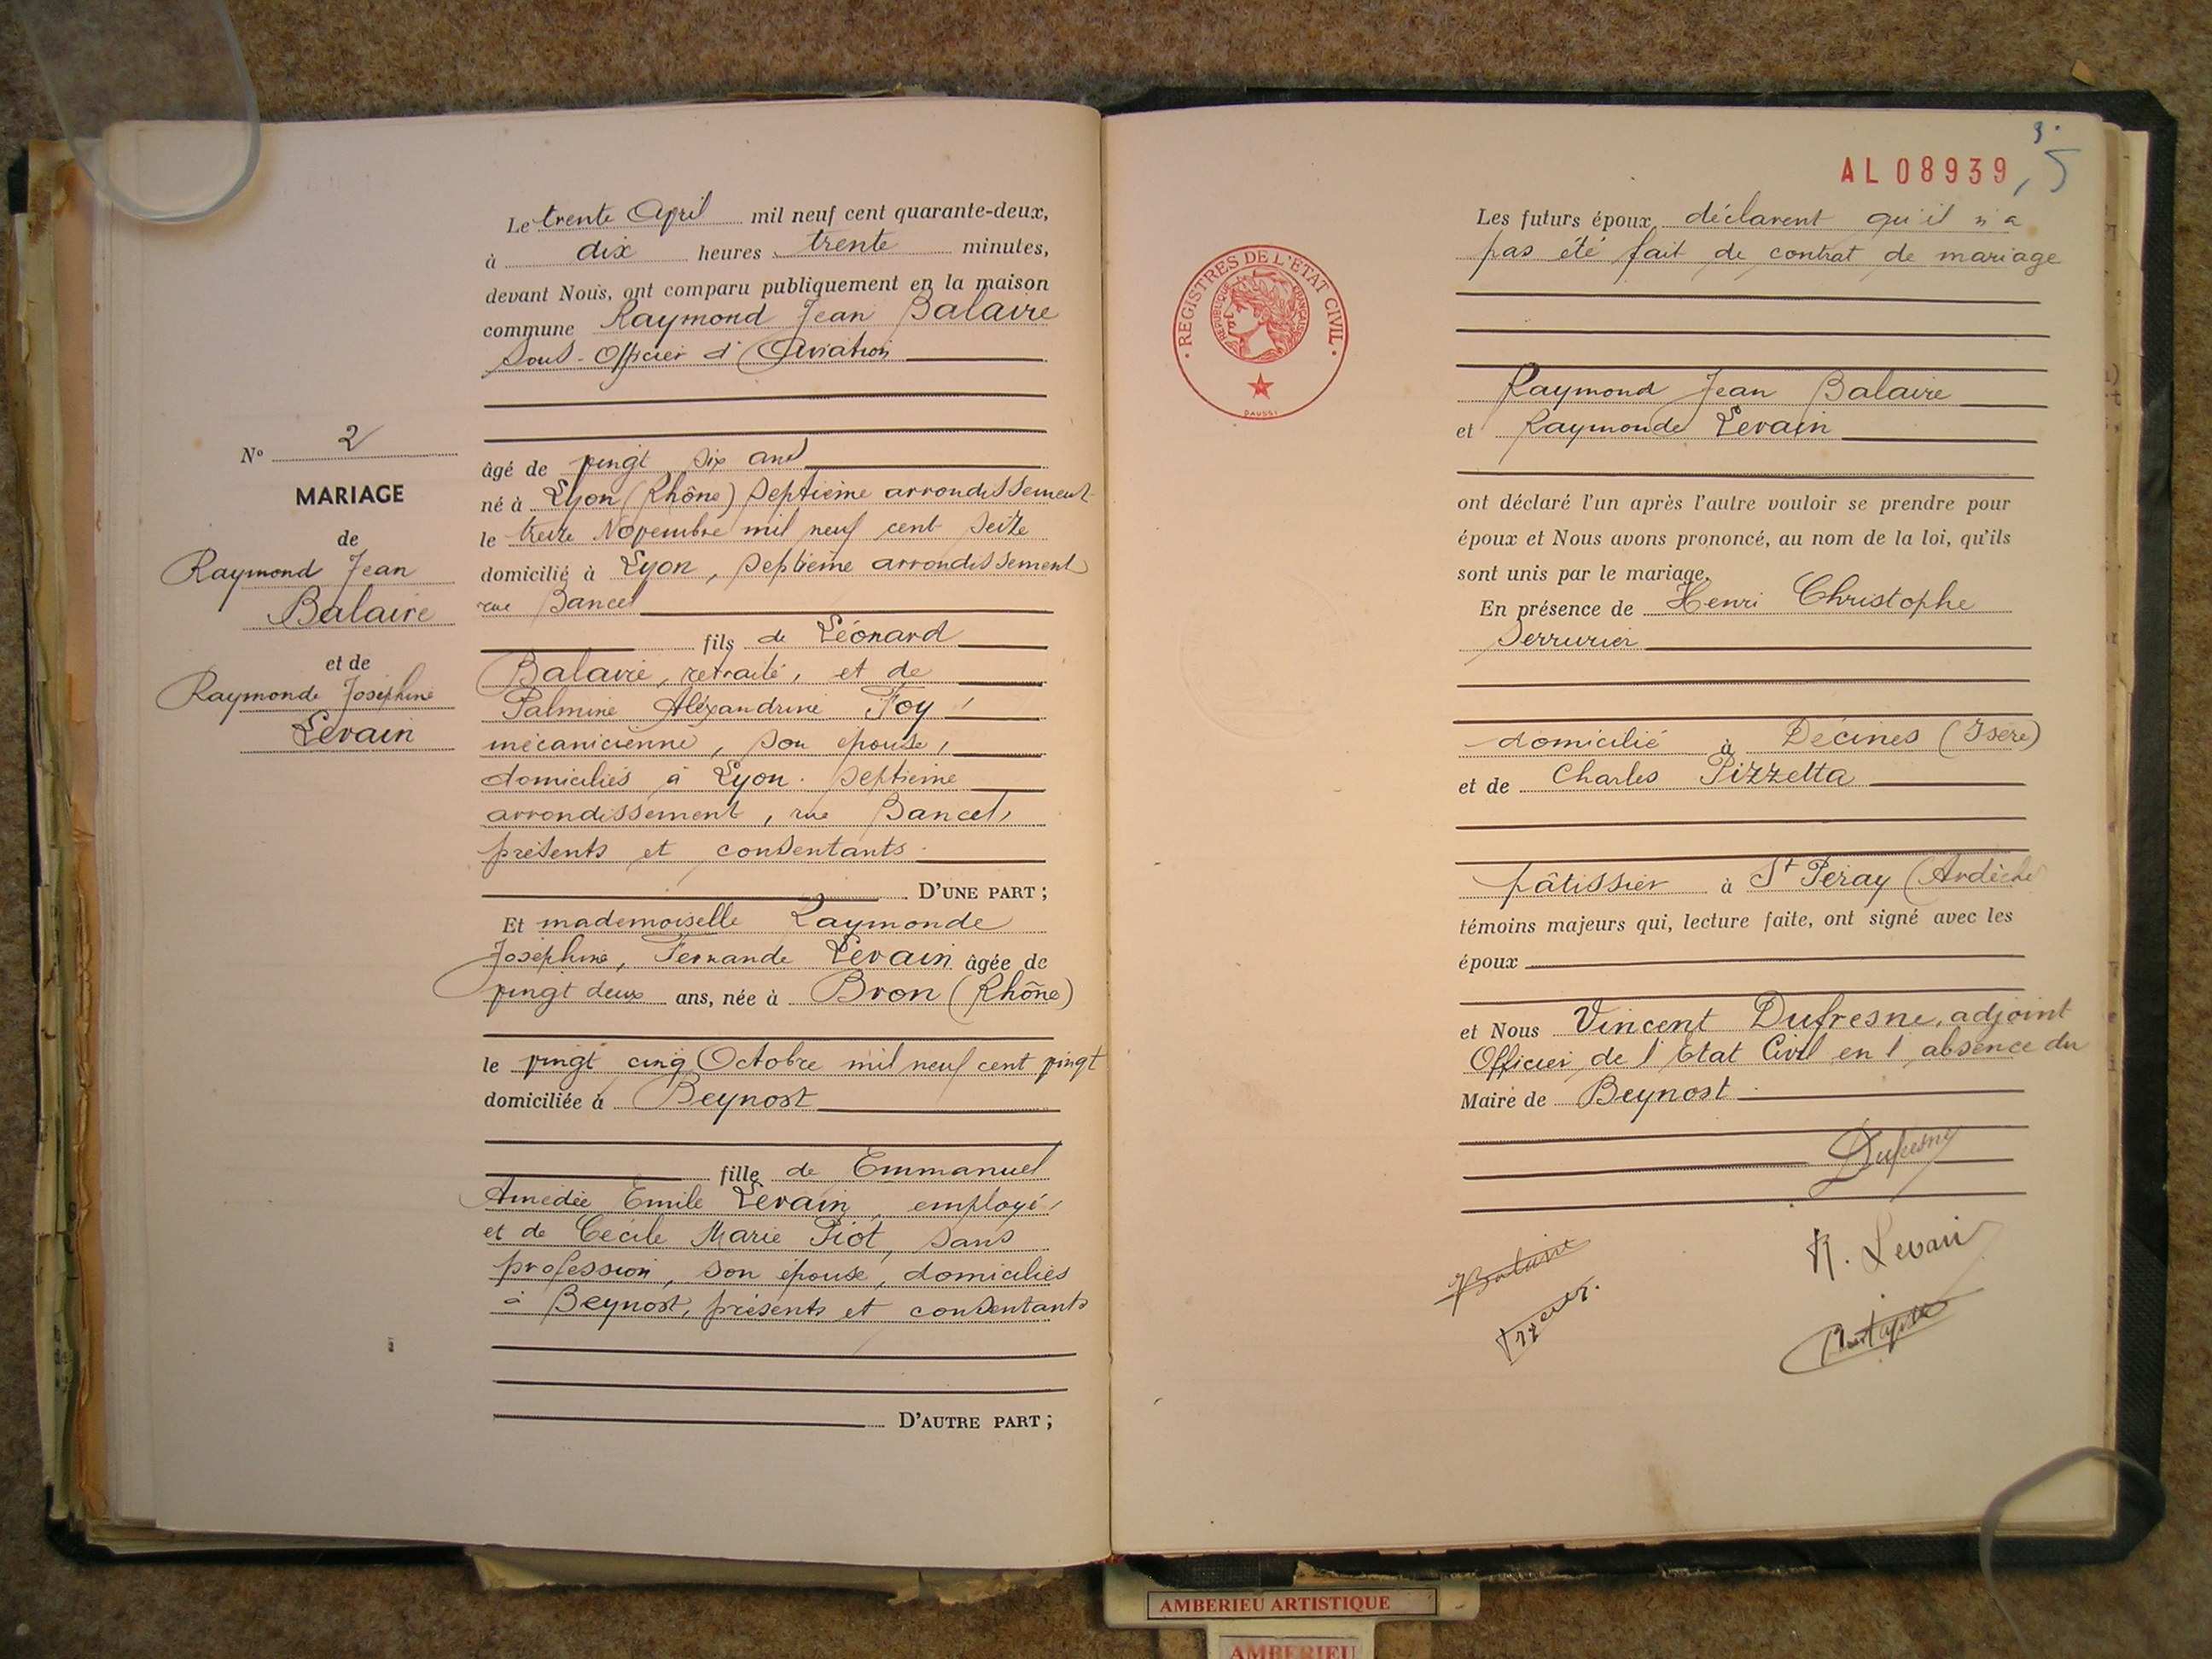 Le trente April mil neuf cent quarante-deux,
à dix heures trente minutes,
devant Nous, ont comparu publiquement en la maison
commune Raymond Jean Balaire
Sous-Officier d'Aviation
N° 2
MARIAGE
de
Raymond Jean
Balaire
et de
Raymonde Joséphine
Levain
âgé de vingt six ans
né à Lyon (Rhône) septième arrondissement
le treize Novembre mil neuf cent seize
domicilié à Lyon, septième arrondissement
rue Bancel
fils de Léonard
Balaire, retraité, et de
Palmine Aléxandrine Foy,
mécanicienne, son épouse,
domiciliés à Lyon. septième
arrondissement, rue Bancel,
présents et consentants.
D'UNE PART ;
Et mademoiselle Raymonde
Joséphine, Fernande Levain âgée de
vingt deux ans, née à Bron (Rhône)
le vingt cinq Octobre mil neuf cent vingt
domiciliée à Beynost
fille de Emmanuel
Amédée Emile Levain, employé,
et de Cécile Marie Piot, sans
profession, son épouse, domiciliés
à Beynost, présents et consentants
D'AUTRE PART ;
AL 08939
5
REGISTRES DE L'ÉTAT CIVIL
RÉPUBLIQUE FRANÇAISE
DAUSSY
Les futurs époux déclarent qu'il n'a
pas été fait de contrat de mariage
Raymond Jean Balaire
et Raymonde Levain
ont déclaré l'un après l'autre vouloir se prendre pour
époux et Nous avons prononcé, au nom de la loi, qu'ils
sont unis par le mariage.
En présence de Henri Christophe
Serrurier
domicilié à Décines (Isère)
et de Charles Pizzetta
pâtissier à St Péray (Ardèche
témoins majeurs qui, lecture faite, ont signé avec les
époux
et Nous Vincent Dufresne, adjoint
Officier de l'Etat Civil en l'absence du
Maire de Beynost
Dufresne
R. Levain
Balaire
AMBERIEU ARTISTIQUE
AMBERIEU